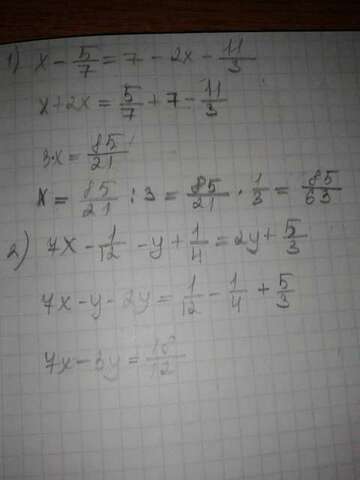 1) x - 5/7 = 7 - 2x - 11/3
x + 2x = 5/7 + 7 - 11/3
3x = 85/21
x = 85/21 : 3 = 85/21 · 1/3 = 85/63
2) 7x - 1/12 - y + 1/4 = 2y + 5/3
7x - y - 2y = 1/12 - 1/4 + 5/3
7x - 3y = 18/12